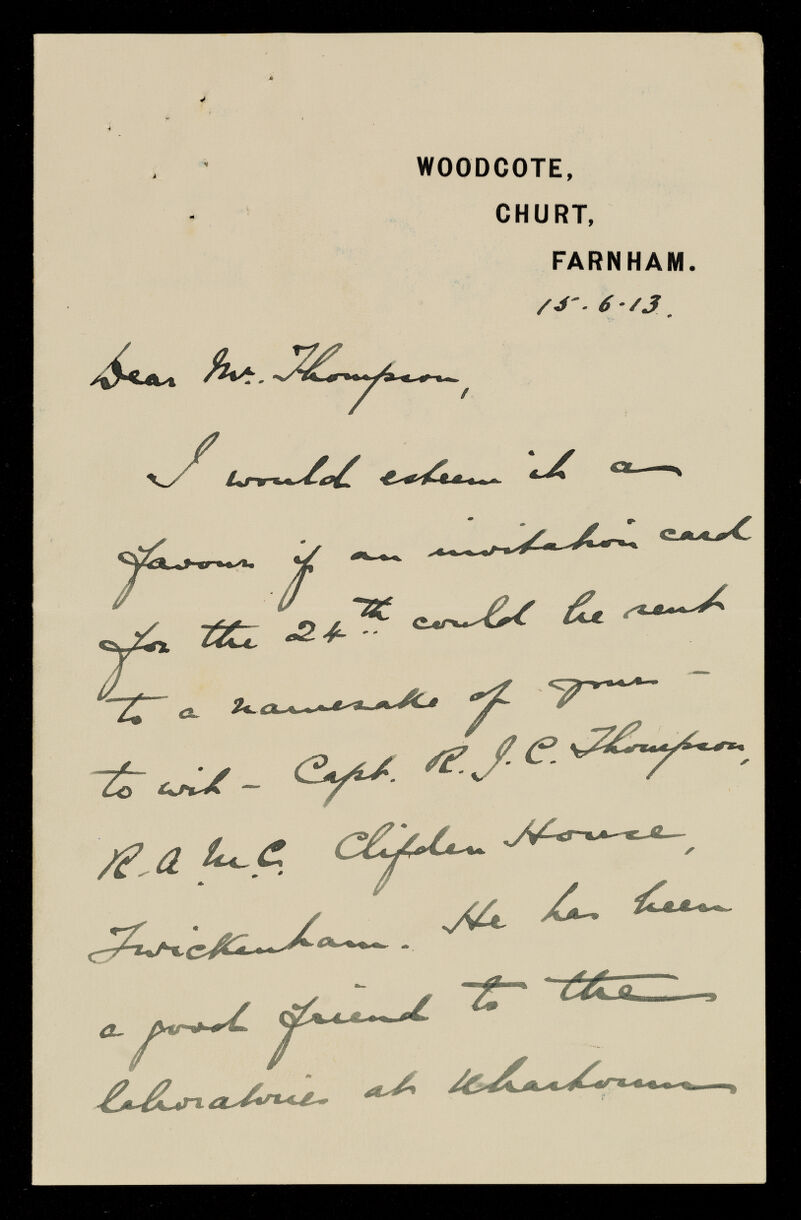 WOODCOTE,
CHURT,
FARNHAM.
15.6.13.
Dear Mr. Thompson,
I would esteem it a
favour if an invitation card
for the 24th could be sent
to a namesake of yours –
to wit – Capt. R. J. C. Thompson,
R.A.M.C. Clifden House,
Twickenham. He has been
a good friend to the
laboratories at Khartoum